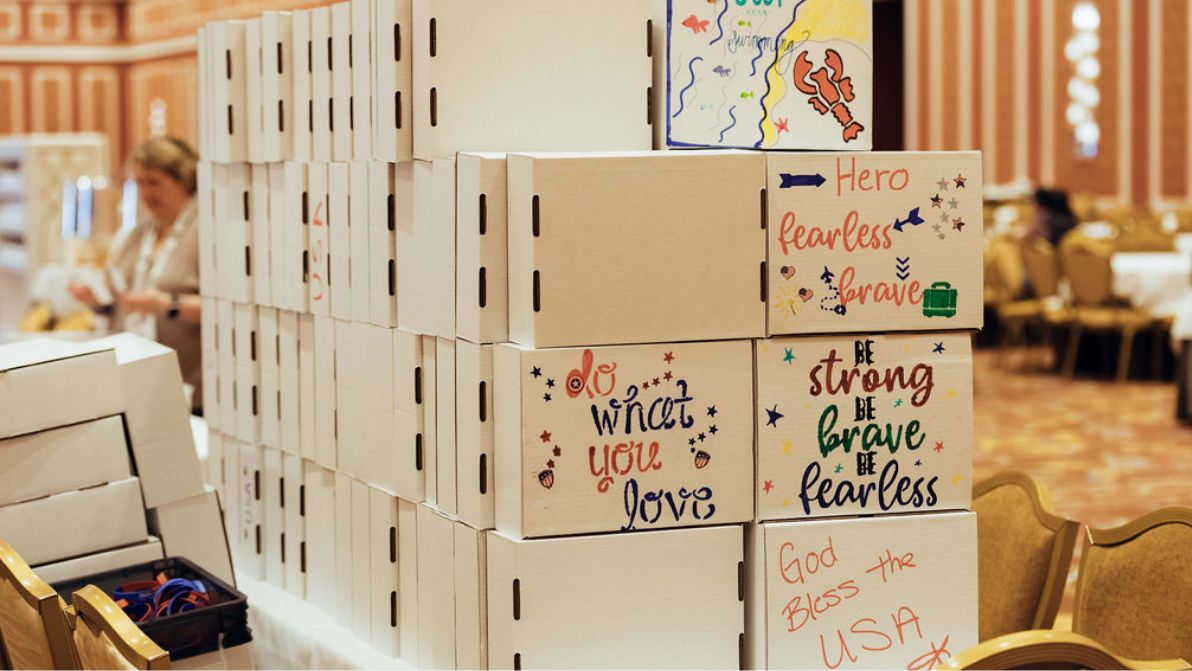 swimming
Hero
fearless
brave
USA
do
what
you
love
BE
strong
BE
brave
BE
fearless
USA
God
Bless the
USA